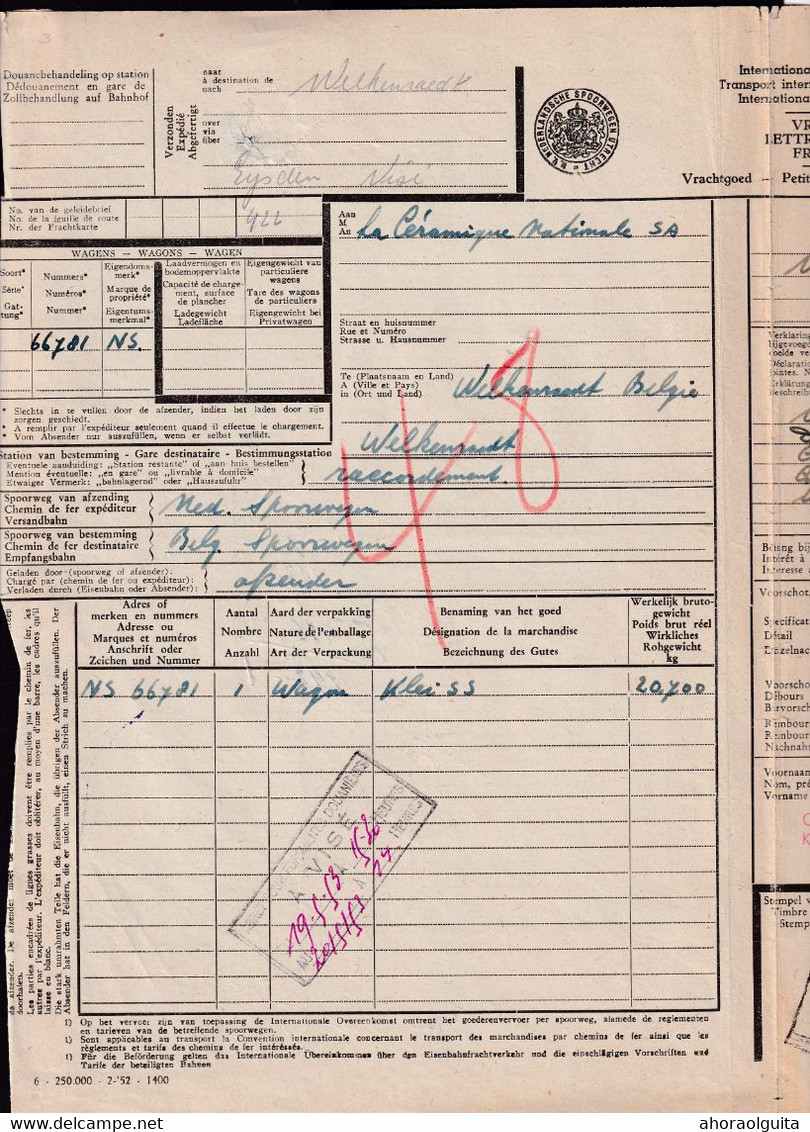 Douanebehandeling op station
Dédouanement en gare de
Zollbehandlung auf Bahnhof
Verzonden
Expédié
Abgefertigt
naar
à destination de
nach
Welkenraedt
over
via
über
Eysden Visé
N.V. NEDERLANDSCHE SPOORWEGEN UTRECHT
International
Transport inter
International
VR
LETTR
FR
Vrachtgoed — Petit
No. van de geleidebrief
No. de la feuille de route
Nr. der Frachtkarte
422
WAGENS - WAGONS - WAGEN
Soort*
Série*
Gat-
tung*
Nummers*
Numéros*
Nummer*
Eigendoms-
merk*
Marque de
propriété*
Eigentums-
merkmal*
Laadvermogen en
bodemoppervlakte
Capacité de charge-
ment, surface
de plancher
Ladegewicht
Ladefläche
Eigengewicht van
particuliere
wagens
Tare des wagons
de particuliers
Eigengewicht bei
Privatwagen
66781 NS.
* Slechts in te vullen door de afzender, indien het laden door zijn
zorgen geschiedt.
* A remplir par l'expéditeur seulement quand il effectue le chargement.
* Vom Absender nur auszufüllen, wenn er selbst verlädt.
Aan
M
An
La Céramique Nationale SA
Straat en huisnummer
Rue et Numéro
Strasse u. Hausnummer
Te (Plaatsnaam en Land)
A (Ville et Pays)
in (Ort und Land)
Welkenraedt Belgie
Station van bestemming - Gare destinataire - Bestimmungsstation
Eventuele aanduiding: „Station restante" of „aan huis bestellen"
Mention éventuelle: „en gare" ou „livrable à domicile"
Etwaiger Vermerk: „bahnlagernd" oder „Hauszufuhr"
Welkenraedt
raccordement.
Spoorweg van afzending
Chemin de fer expéditeur
Versandbahn
Ned. Spoorwegen
Spoorweg van bestemming
Chemin de fer destinataire
Empfangsbahn
Belg. Spoorwegen
Geladen door (spoorweg of afzender):
Chargé par (chemin de fer ou expéditeur):
Verladen durch (Eisenbahn oder Absender):
afzender
Adres of
merken en nummers
Adresse ou
Marques et numéros
Anschrift oder
Zeichen und Nummer
Aantal
Nombre
Anzahl
Aard der verpakking
Nature de l'emballage
Art der Verpackung
Benaming van het goed
Désignation de la marchandise
Bezeichnung des Gutes
Werkelijk bruto-
gewicht
Poids brut réel
Wirkliches
Rohgewicht
kg
NS 66781 1 Wagon Klei SS 20700
A VISÉ
19-5-53 15-30
20/5/53 24.
HEURES
HEURES
Les parties encadrées de lignes grasses doivent être remplies par le chemin de fer, les
autres par l'expéditeur. L'expéditeur doit oblitérer, au moyen d'une barre, les cadres qu'il
laisse en blanc.
Die stark umrahmten Teile hat die Eisenbahn, die übrigen der Absender auszufüllen. Der
Absender hat in den Feldern, die er nicht ausfüllt, einen Strich zu machen.
doorhalen.
1) Op het vervoer zijn van toepassing de Internationale Overeenkomst omtrent het goederenvervoer per spoorweg, alsmede de reglementen
en tarieven van de betreffende spoorwegen.
1) Sont applicables au transport la Convention internationale concernant le transport des marchandises par chemins de fer ainsi que les
règlements et tarifs des chemins de fer intéressés.
1) Für die Beförderung gelten das Internationale Übereinkommen über den Eisenbahnfrachtverkehr und die einschlägigen Vorschriften und
Tarife der beteiligten Bahnen
6 - 250.000 - 2-'52 - 1400
Verklaring
bijgevoeg
Déclaratio
jointes.
Erklärung
Belang bij
Intérêt à
Interesse a
Voorschot
Specificat
Détail
Einzelnac
Voorscho
Débours
Barvorsch
Rembour
Rembour
Nachnah
Voornaam
Nom, pré
Vorname
Stempel v
Timbre
Stemp
ahoraolguita